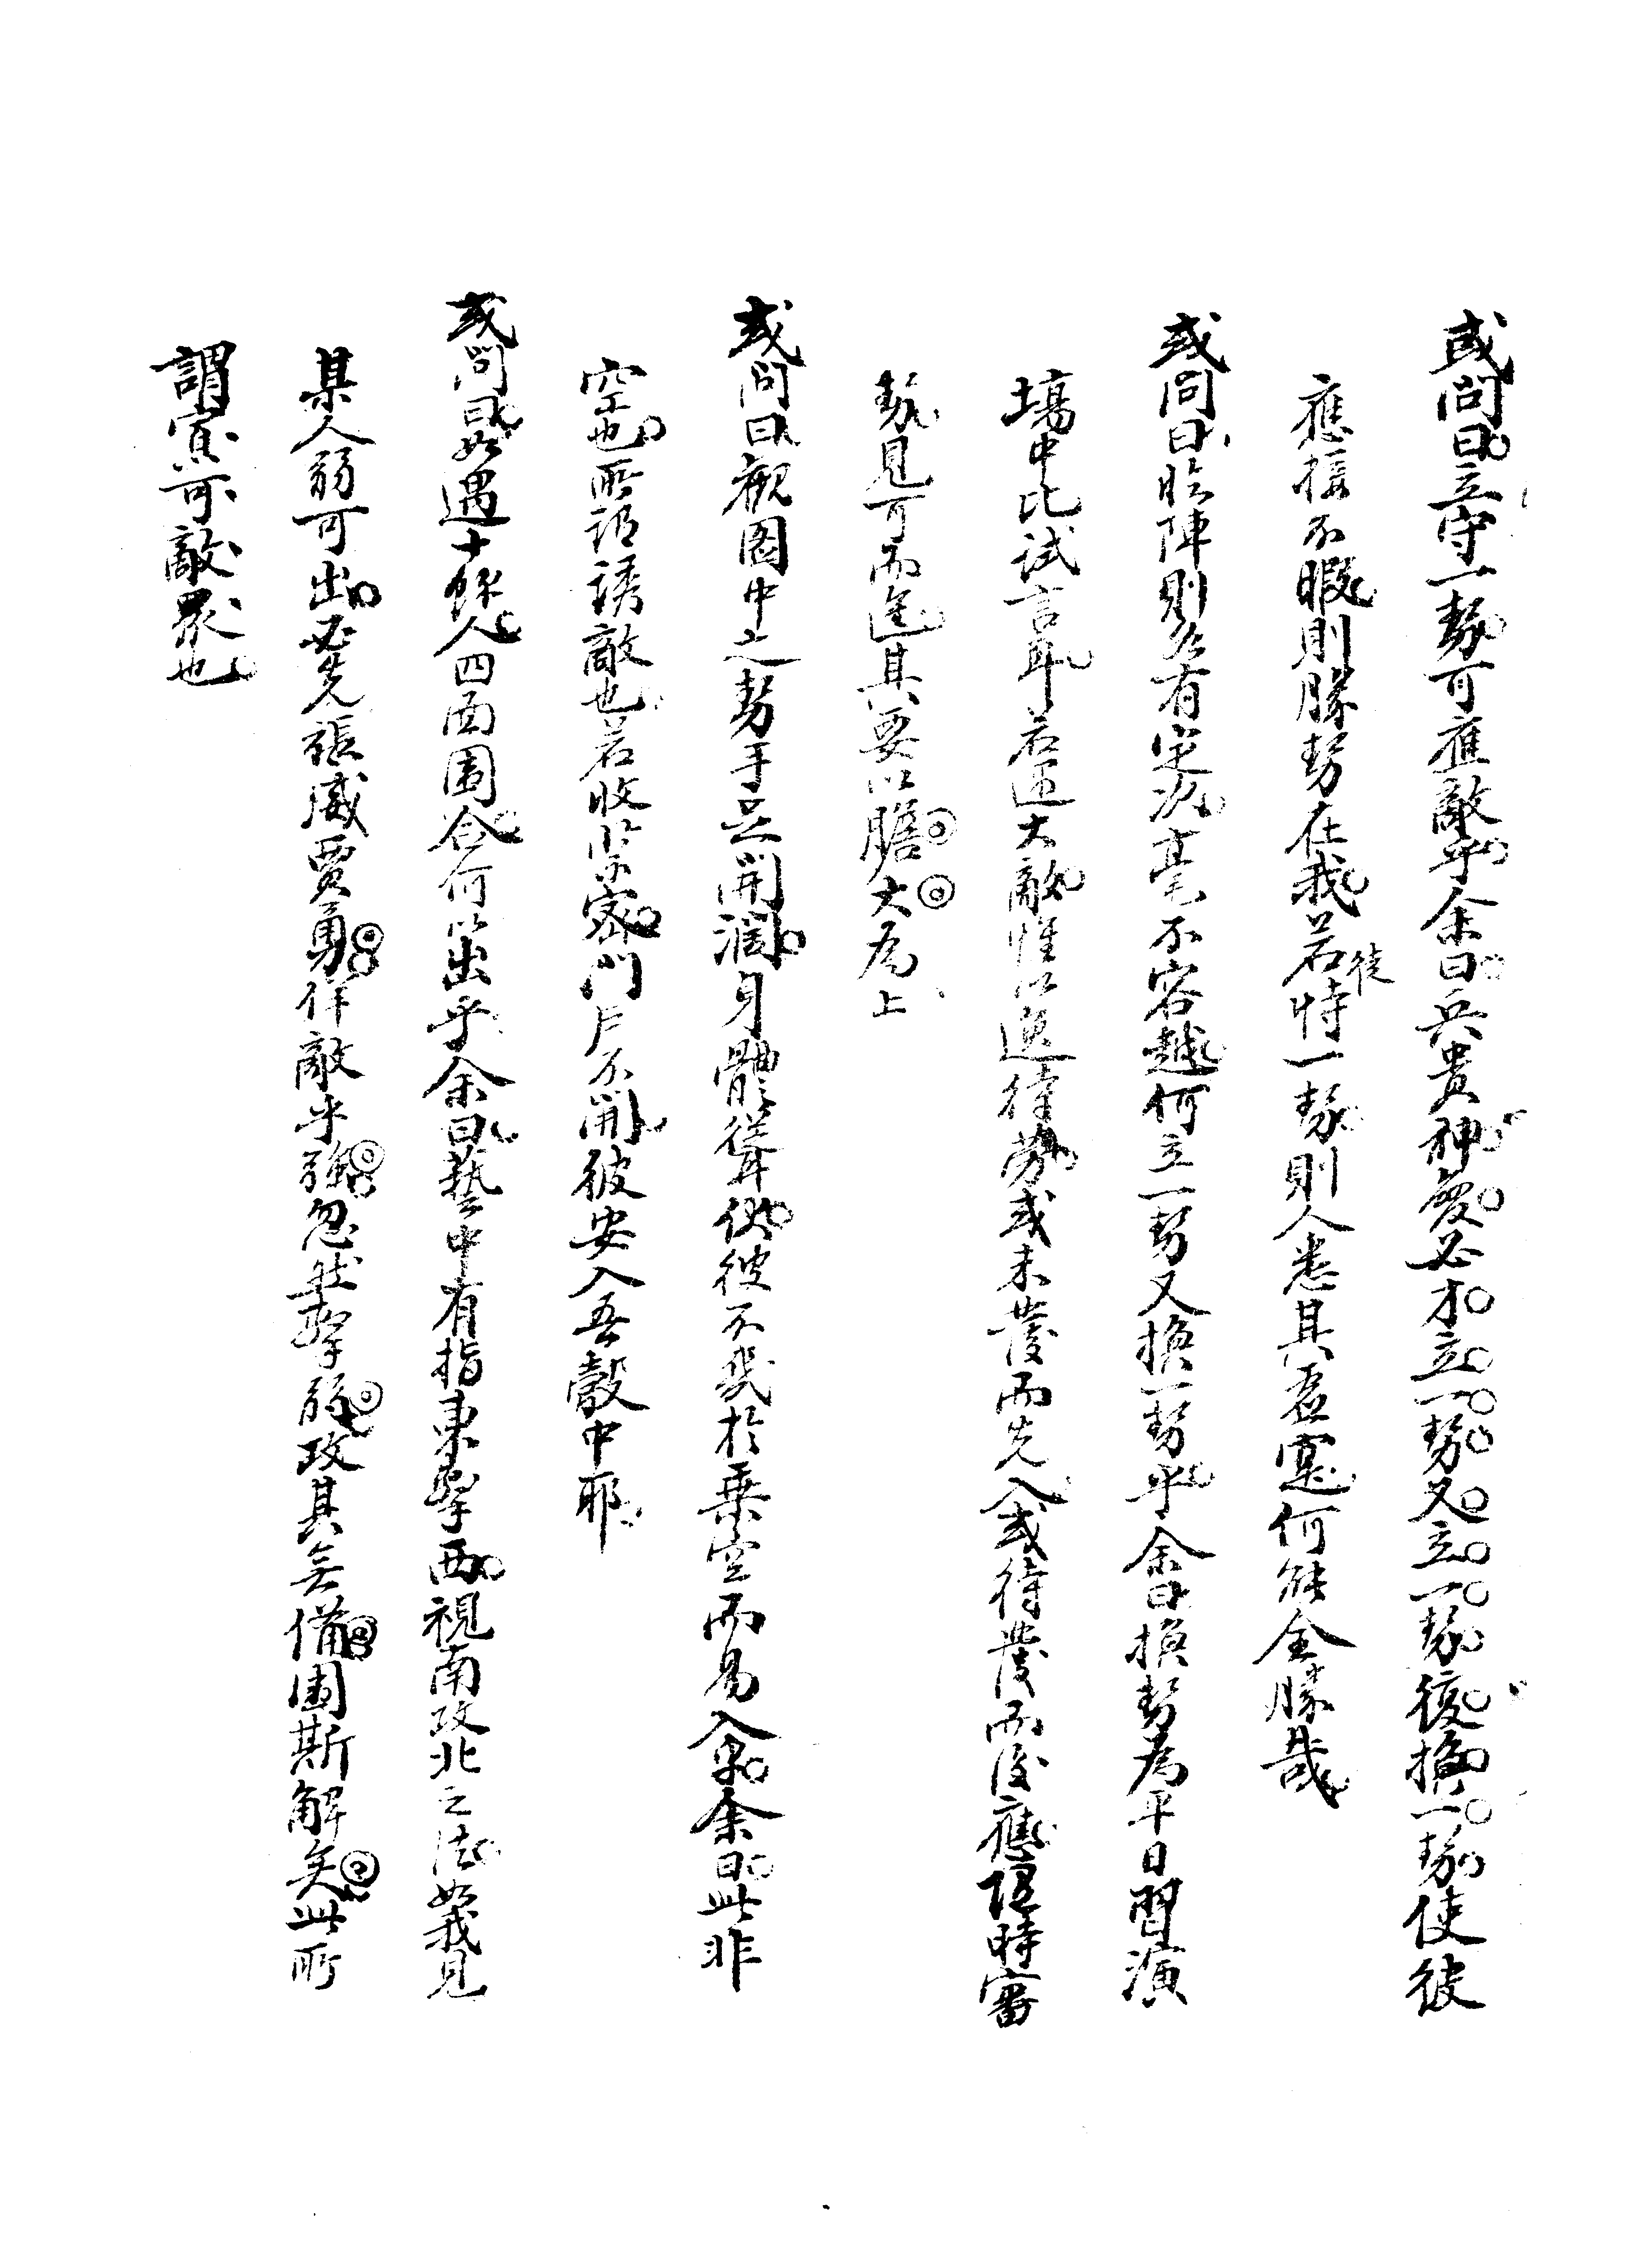 或問曰立守一勢可應敵乎余曰兵貴神变必才立一勢又立一勢復換一勢使彼
應接不暇則勝勢在我若徒恃一勢則人悉其虛寔何能全勝哉
或問曰臨陣則多有定況毫不容越何立一勢又換一勢乎余曰換勢為平日習演
塲中比試言耳若迎大敵惟以逸待勞或未發而先入或待發而後應隨時審
勢見可而進其要以膽大為上
或問曰觀圖中之勢手足開濶身體聳伏彼不幾於乗空而易入乎余曰此非
空也所謂誘敵也若收緊密門戶不開彼安入吾彀中耶
或問曰如遇十餘人四面圍合何以出乎余曰藝中有指東擊西視南攻北之法如我見
某人弱可出必先張威賈勇佯敵乎強忽然擊弱攻其无備圍斯解矣此所
謂寡可敵衆也